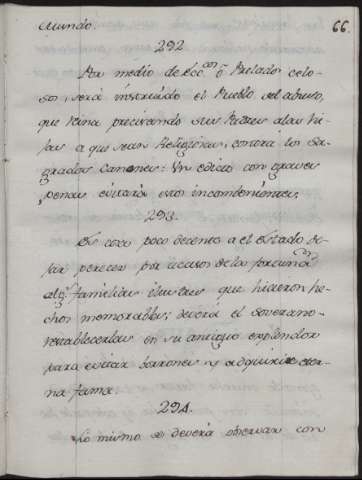 mundo.
66.
292
Por medio de Ecc.cos ó Prelados celo-
sos, será instruido el Pueblo del abuso,
que reina precisando sus Padres a las hi-
jas a que sean Religiosas, contra los Sa-
grados Canones: Un edicto con graves
penas evitará estos incombenientes.
293.
Es cosa poco decente a el Estado de-
jar perecer por acasos de la fortuna
alg.s familias ilustres que hicieron he-
chos memorables; deverá el Soverano
restablecerlas en su antiguo esplendor
para evitar varones y adquirir eter-
na fama.
294.
Lo mismo se deverá observar con